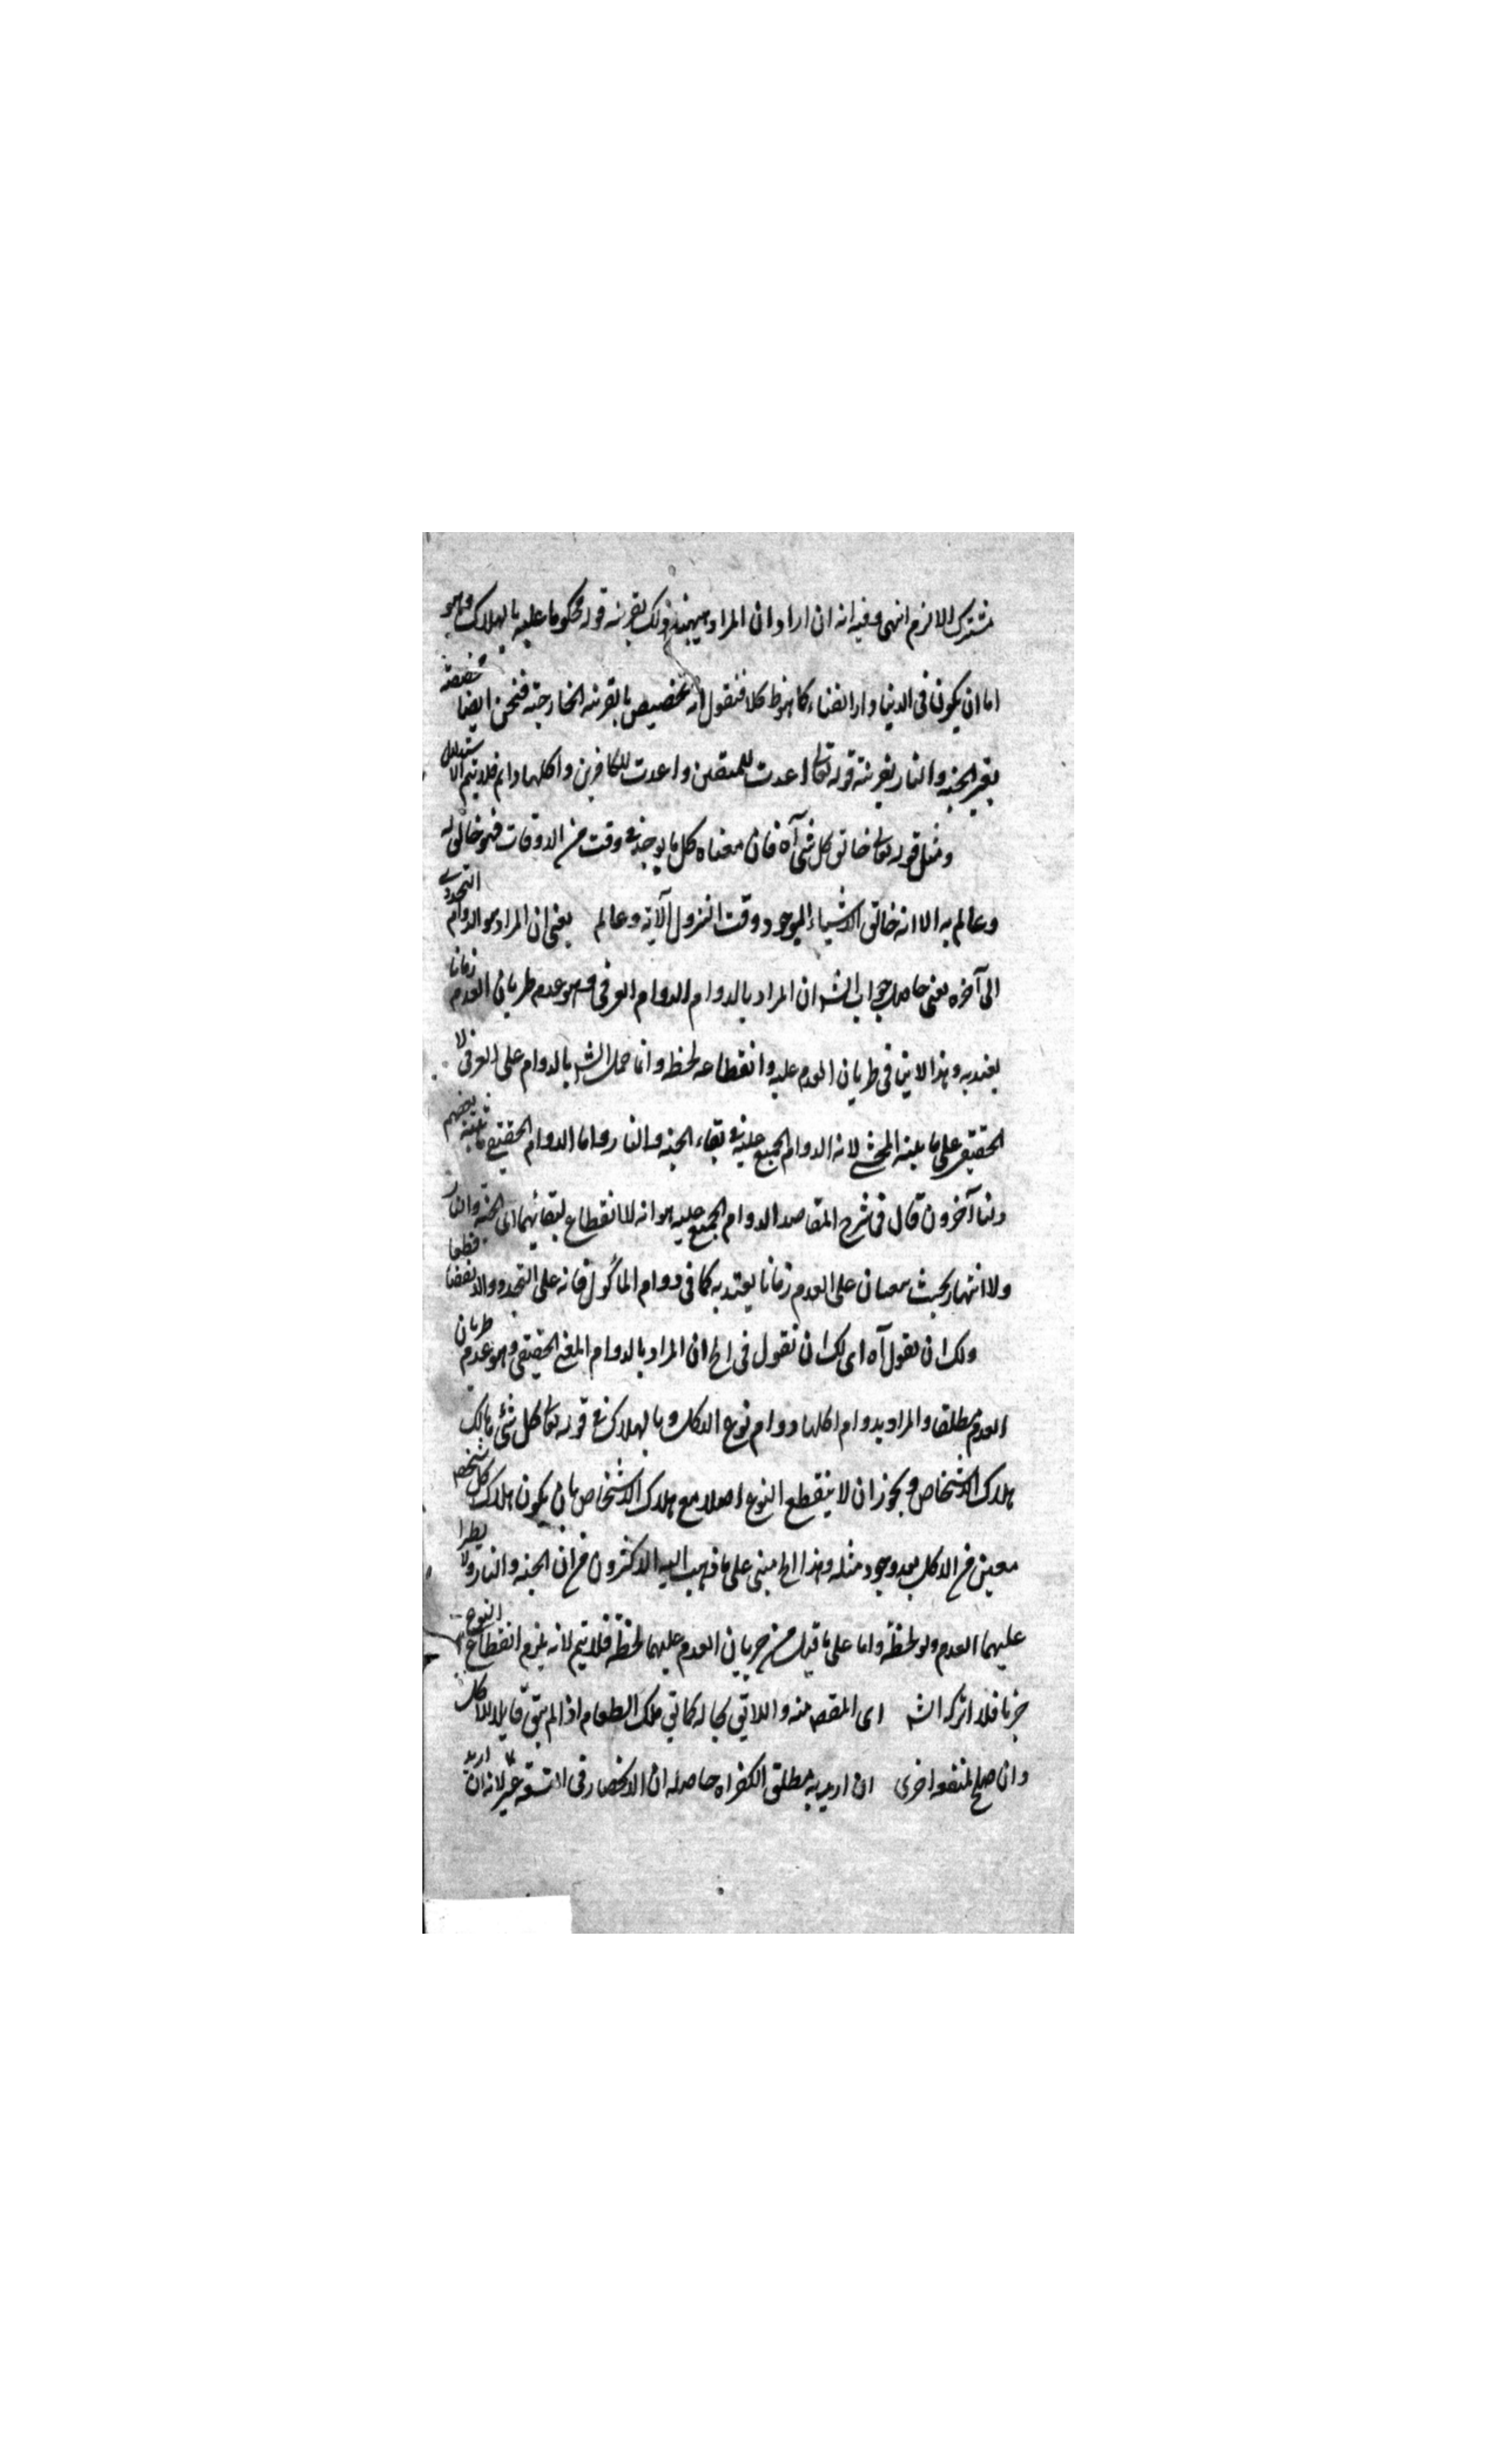 مشترك الالزام انتهى وفيه انه ان اراد ان المراد بقرينة قوله محكوما عليه بالهلاك وهو
اما ان يكون في الدنيا دار الفناء كما هو ظ كلا فنقول انه تخصيص بالقرينة الخارجية فنحن ايضا نخصصه
بغير الجنة والنار بقرينة قوله تعالى اعدت للمتقين واعدت للكافرين واكلها دائم فلا يتم الاستدلال
ومثل قوله تعالى خالق كل شئ آه فان معناه كل ما يوجد في وقت من الاوقات فهو خالق له
وعالم به الا انه خالق الاشياء الموجود وقت النزول الآية وعالم يعني ان المراد هو الدوام التجددي
الى آخره يعني حاصل جواب الش ان المراد بالدوام الدوام العرفي وهو عدم طريان العدم زمانا
يعتد به وهذا لا ينافي طريان العدم عليه وانقطاعه لحظة وانما حمل الش بالدوام على العرفي لا
الحقيقي على ما بينه المحشي لانه الدوام المجمع عليه في بقاء الجنة والنار واما الدوام الحقيقي فاثبته بعضهم
ونفاه آخرون قال في شرح المقاصد الدوام المجمع عليه هو انه لا انقطاع لبقائهما اى الجنة والنار
ولا انتهاء بحيث يبقيان على العدم زمانا يعتد به كما في دوام المأكول فانه على التجدد والانقضاء قطعا
ولك ان تقول آه اى لك ان تقول في الج ان المراد بالدوام المعنى الحقيقي وهو عدم طريان
العدم مطلقا والمراد بدوام اكلها دوام نوع الاكل وبالهلاك في قوله تعالى كل شئ هالك
هلاك الاشخاص ويجوز ان لا ينقطع النوع اصلا مع هلاك الاشخاص بان يكون هلاك كل شخص
معين من الاكل بعد وجود مثله وهذا الج مبنى على ما ذهب اليه الاكثرون من ان الجنة والنار لا يطرأ
عليهما العدم ولو لحظة واما على ما قيل من جريان العدم عليهما لحظة فلا يتم لانه يلزم انقطاع النوع
جزما فلذا تركه الش اى المقصه منه واللائق بحاله كما في ملك الطعام اذا لم يبق قابلا للاكل
وان صلح لمنفعة اخرى ان اريد به مطلق الكفر آه حاصله ان الانحصار في التسعة غير لانه ان اريد